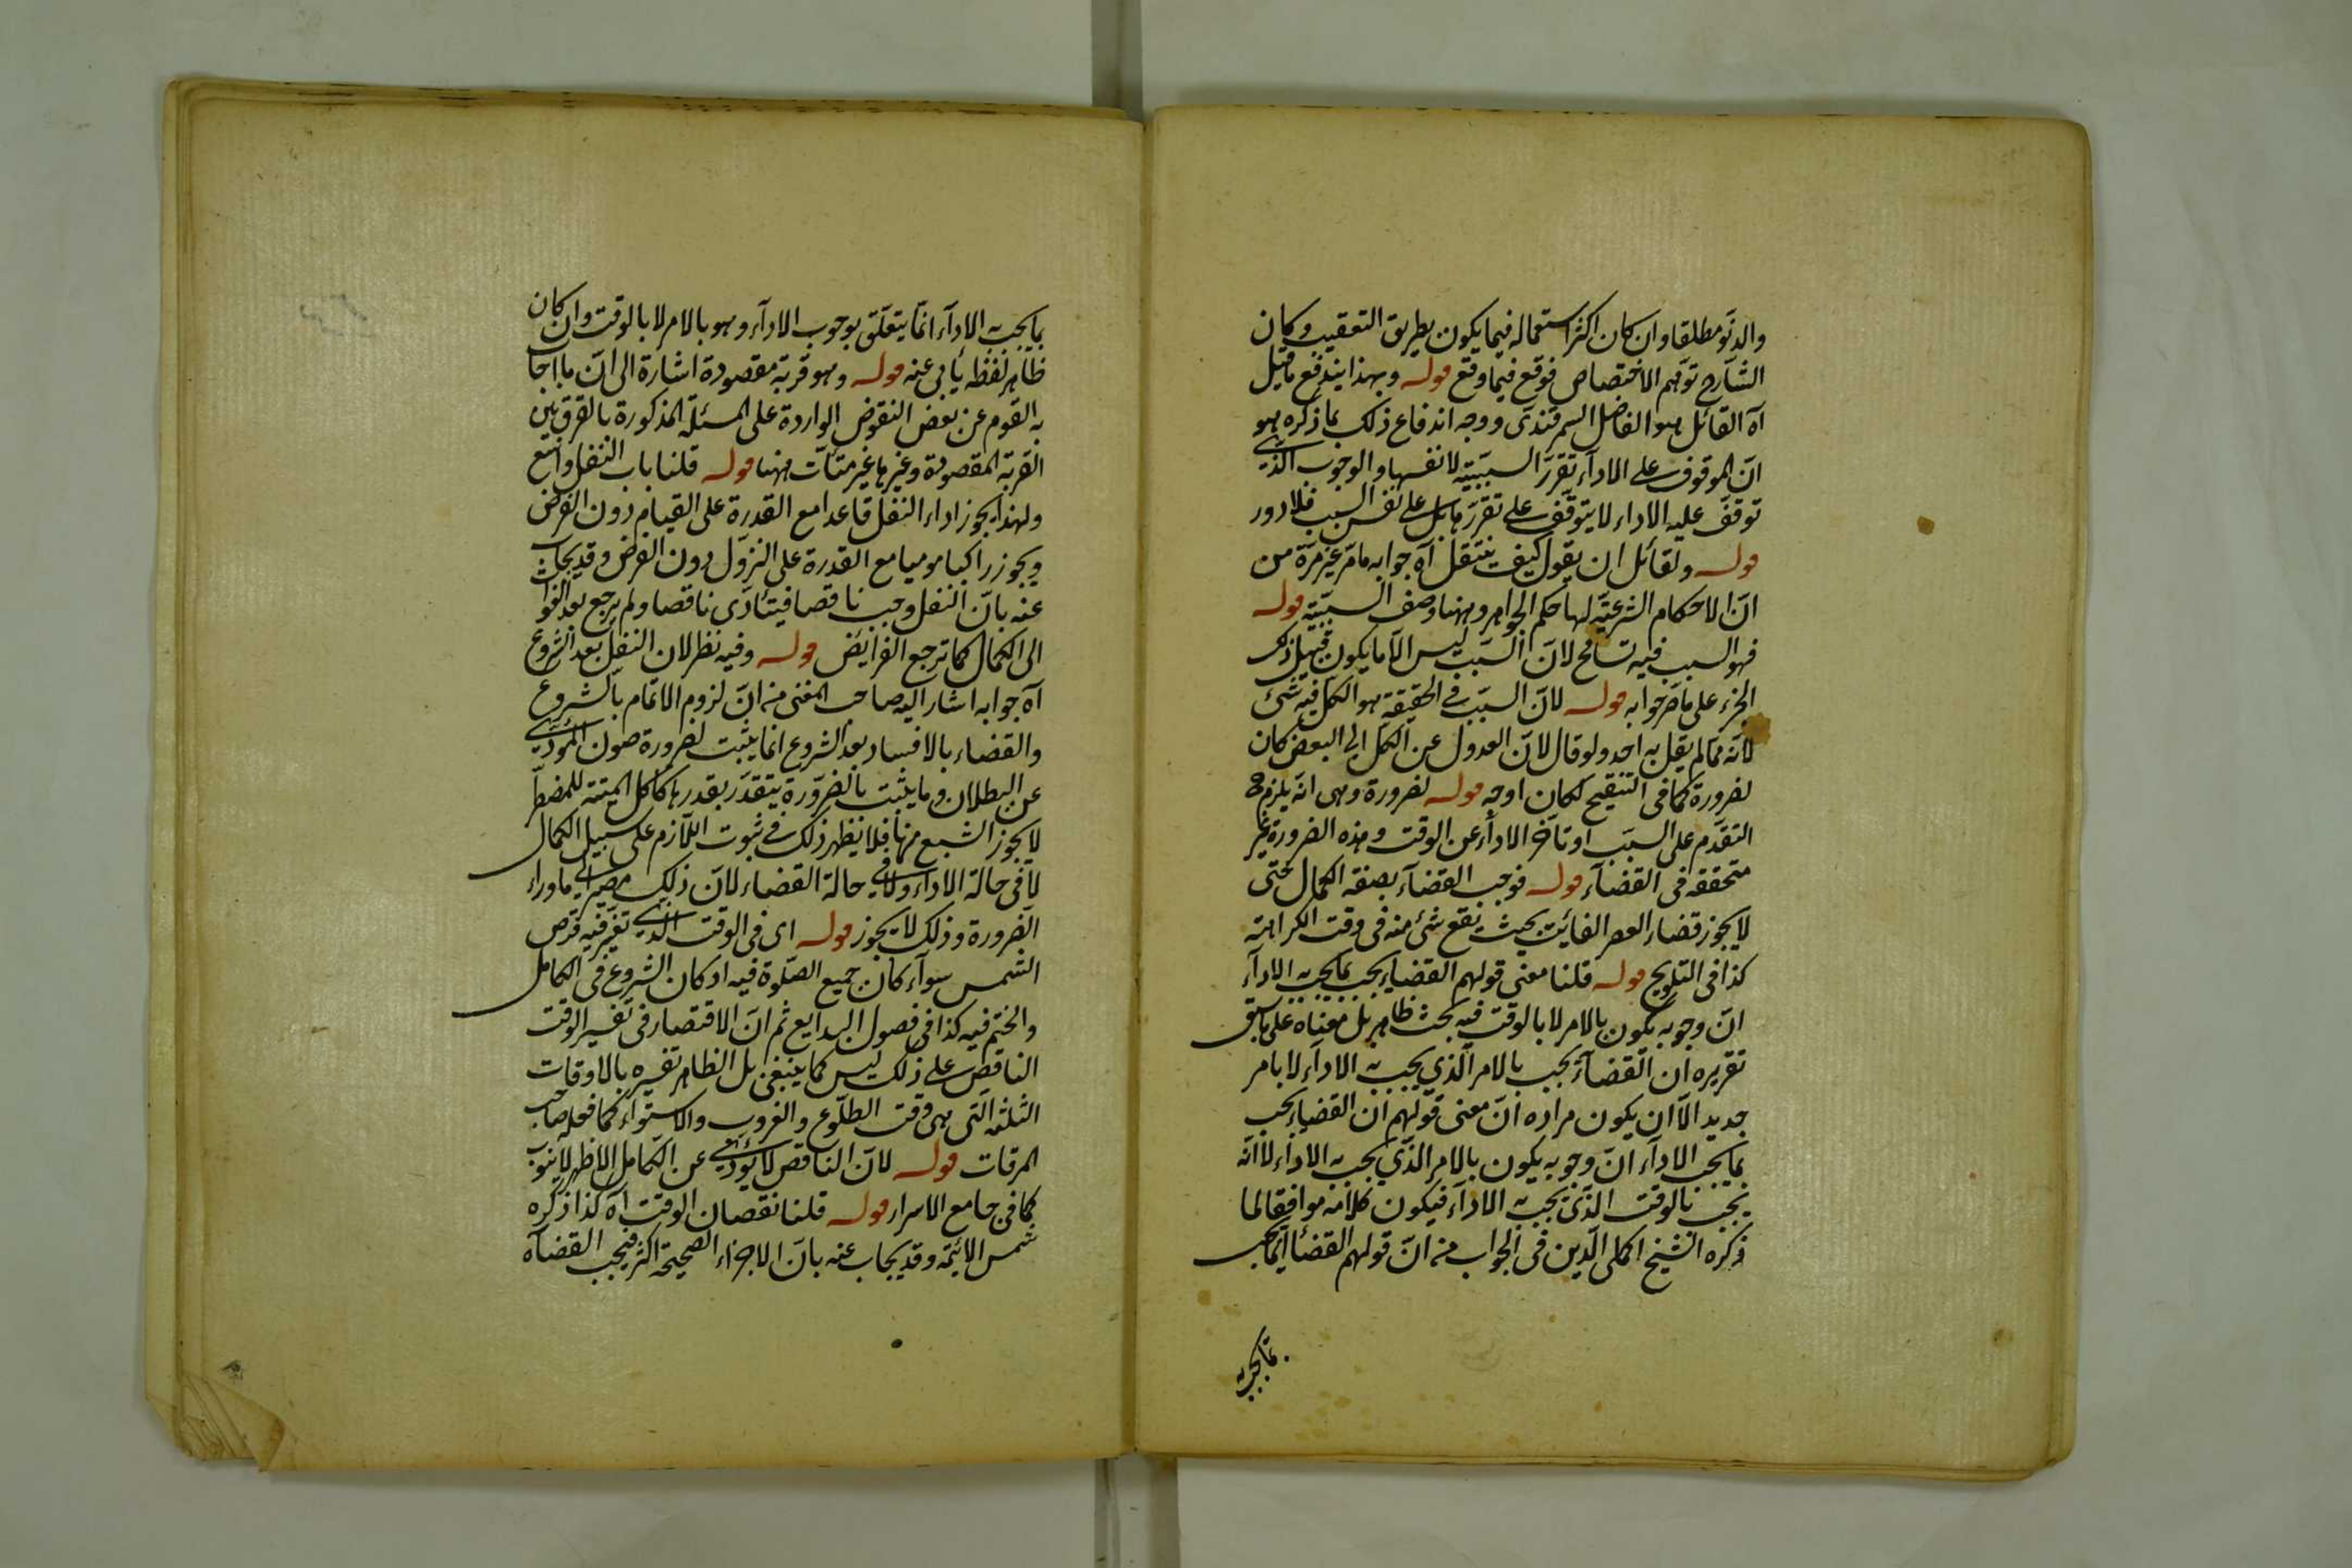 والدنو مطلقا وان كان اكثر استعماله فيما يكون بطريق التعقيب وكان
الشارح توهم الاختصاص فوقع فيما وقع قوله وبهذا يندفع ما قيل
آه القائل هو الفاضل السمرقندى ووجه اندفاع ذلك بما ذكره هو
ان الموقوف على الاداء تقرر السببية لا نفسها والوجوب الذى
توقف عليه الاداء لا يتوقف على تقررها بل على نفس السبب فلا دور
قوله ولقائل ان يقول كيف ينتقل آه جوابه ما مر غير مرة من
ان الاحكام الشرعية لها حكم الجواهر وههنا وصف السببية قوله
فهو السبب فيه تسامح لان السبب ليس الا ما يكون قبيل ذلك
الجزء على ما مر جوابه قوله لان السبب فى الحقيقة هو الكل فيه شئ
لانه مما لم يقل به احد ولو قال لان العدول عن الكل الى البعض كان
لضرورة كما فى التنقيح لكان اوجه قوله لضرورة وهى انه يلزم ح
التقدم على السبب او تأخر الاداء عن الوقت وهذه الضرورة غير
متحققة فى القضاء قوله فوجب القضاء بصفة الكمال حتى
لا يجوز قضاء العصر الفائت بحيث يقع شئ منه فى وقت الكراهة
كذا فى التلويح قوله قلنا معنى قولهم القضاء يجب بما يجب به الاداء
ان وجوبه يكون بالامر لا بالوقت فيه بحث ظاهر بل معناه على ما سبق
تقريره ان القضاء يجب بالامر الذى يجب به الاداء لا بامر
جديد الا ان يكون مراده ان معنى قولهم ان القضاء يجب
بما يجب الاداء ان وجوبه يكون بالامر الذى يجب به الاداء لا انه
يجب بالوقت الذى يجب به الاداء فيكون كلامه موافقا لما
ذكره الشيخ اكمل الدين فى الجواب من ان قولهم القضاء انما يجب
بما يجب به
بما يجب به الاداء انما يتعلق بوجوب الاداء وهو بالامر لا بالوقت وان كان
ظاهر لفظه يأبى عنه قوله وهو قربة مقصودة اشارة الى ان ما اجاب
به القوم عن بعض النقوض الواردة على المسئلة المذكورة بالفرق بين
القربة المقصودة وغيرها غير متأت ههنا قوله قلنا باب النفل واسع
ولهذا يجوز اداء النفل قاعدا مع القدرة على القيام دون الفرض
ويجوز راكبا موميا مع القدرة على النزول دون الفرض وقد يجاب
عنه بان النفل وجب ناقصا فيتأدى ناقصا ولم يرجع بعد الفوات
الى الكمال كما ترجع الفرايض قوله وفيه نظر لان النفل بعد الشروع
آه جوابه اشار اليه صاحب المغنى من ان لزوم الاتمام بالشروع
والقضاء بالافساد بعد الشروع انما يثبت لضرورة صون المؤدى
عن البطلان وما يثبت بالضرورة يتقدر بقدرها كاكل الميتة للمضطر
لا يجوز الشبع منها فلا يظهر ذلك فى ثبوت اللازم على سبيل الكمال
لا فى حالة الاداء ولا فى حالة القضاء لان ذلك مصير الى ما وراء
الضرورة وذلك لا يجوز قوله اى فى الوقت الذى تغير فيه قرص
الشمس سواء كان جميع الصلوة فيه او كان الشروع فى الكامل
والختم فيه كذا فى فصول البدايع ثم ان الاقتصار فى تفسير الوقت
الناقص على ذلك ليس كما ينبغى بل الظاهر تفسيره بالاوقات
الثلثة التى هى وقت الطلوع والغروب والاستواء كما فعله صاحب
المرقات قوله لان الناقص لا يؤدى عن الكامل الاظهر لا ينوب
كما فى جامع الاسرار قوله قلنا نقصان الوقت آه كذا ذكره
شمس الائمة وقد يجاب عنه بان الاجزاء الصحيحة اكثر فيجب القضاء